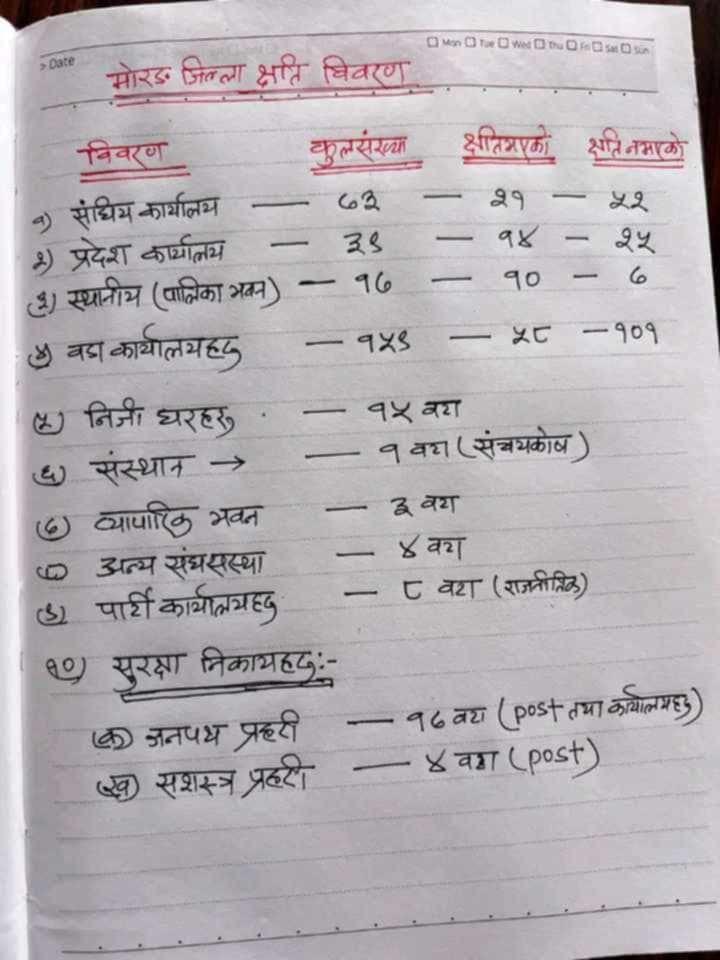 > Date
Mon Tue Wed Thu Fri Sat Sun
मोरङ जिल्ला क्षति विवरण
विवरण कुलसंख्या क्षतिभएको क्षति नभएको
१) संघिय कार्यालय — ७३ — २१ — ५२
२) प्रदेश कार्यालय — ३९ — १४ — २५
३) स्थानीय (पालिका भवन) — १७ — १० — ७
४) वडा कार्यालयहरु — १५९ — ५८ — १०१
५) निजी घरहरु — १५ वटा
६) संस्थान → — १ वटा (संचयकोष)
७) व्यापारिक भवन — ३ वटा
८) अन्य संघसस्था — ४ वटा
९) पार्टी कार्यालयहरु — ८ वटा (राजनीतिक)
१०) सुरक्षा निकायहरु:-
(क) जनपथ प्रहरी — १७ वटा (post तथा कार्यालयहरु)
(ख) सशस्त्र प्रहरी — ४ वटा (post)